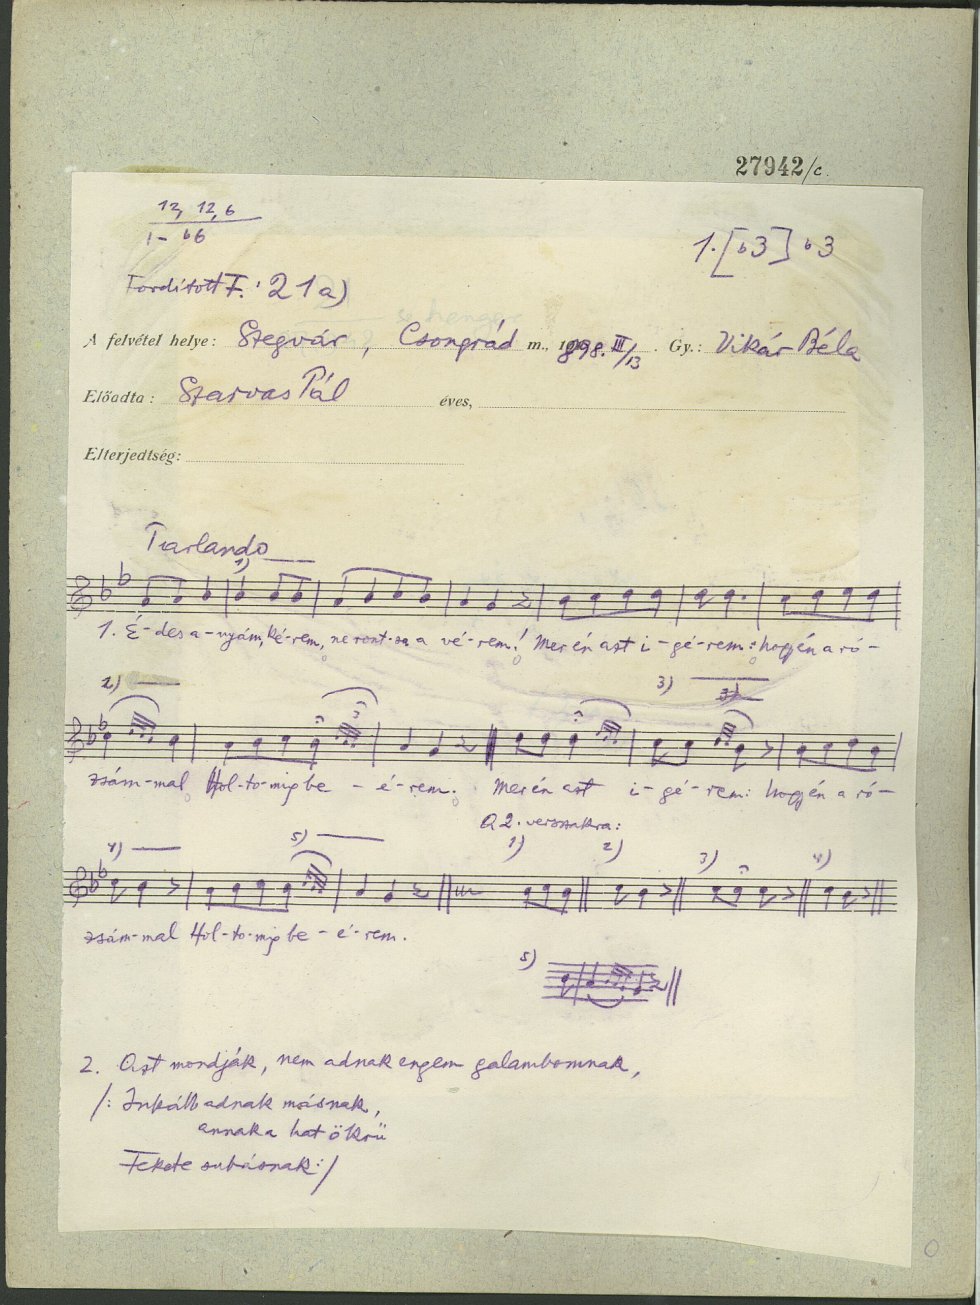 27942/c.
12, 12, 6
1 – b6
1. [b3] b3
Fordított F.: 21a)
A felvétel helye: Szegvár, Csongrád m., 1898. III/13. Gy.: Vikár Béla
Előadta: Szarvas Pál éves,
Elterjedtség:
Parlando
1)
1. É-des a-nyám, ké-rem, ne ront-sa a vé-rem! Mer én aszt i-gé-rem: hogy én a ró-
2) 3)
zsám-mal Hol-to-mig be-é-rem. Mer én aszt i-gé-rem: hogy én a ró-
A 2. versszakra:
4) 5) 1) 2) 3) 4)
zsám-mal Hol-to-mig be-é-rem.
5)
2. Aszt mondják, nem adnak engem galambomnak,
/: Inkább adnak másnak,
annak a hat ökrü
Fekete subásnak :/